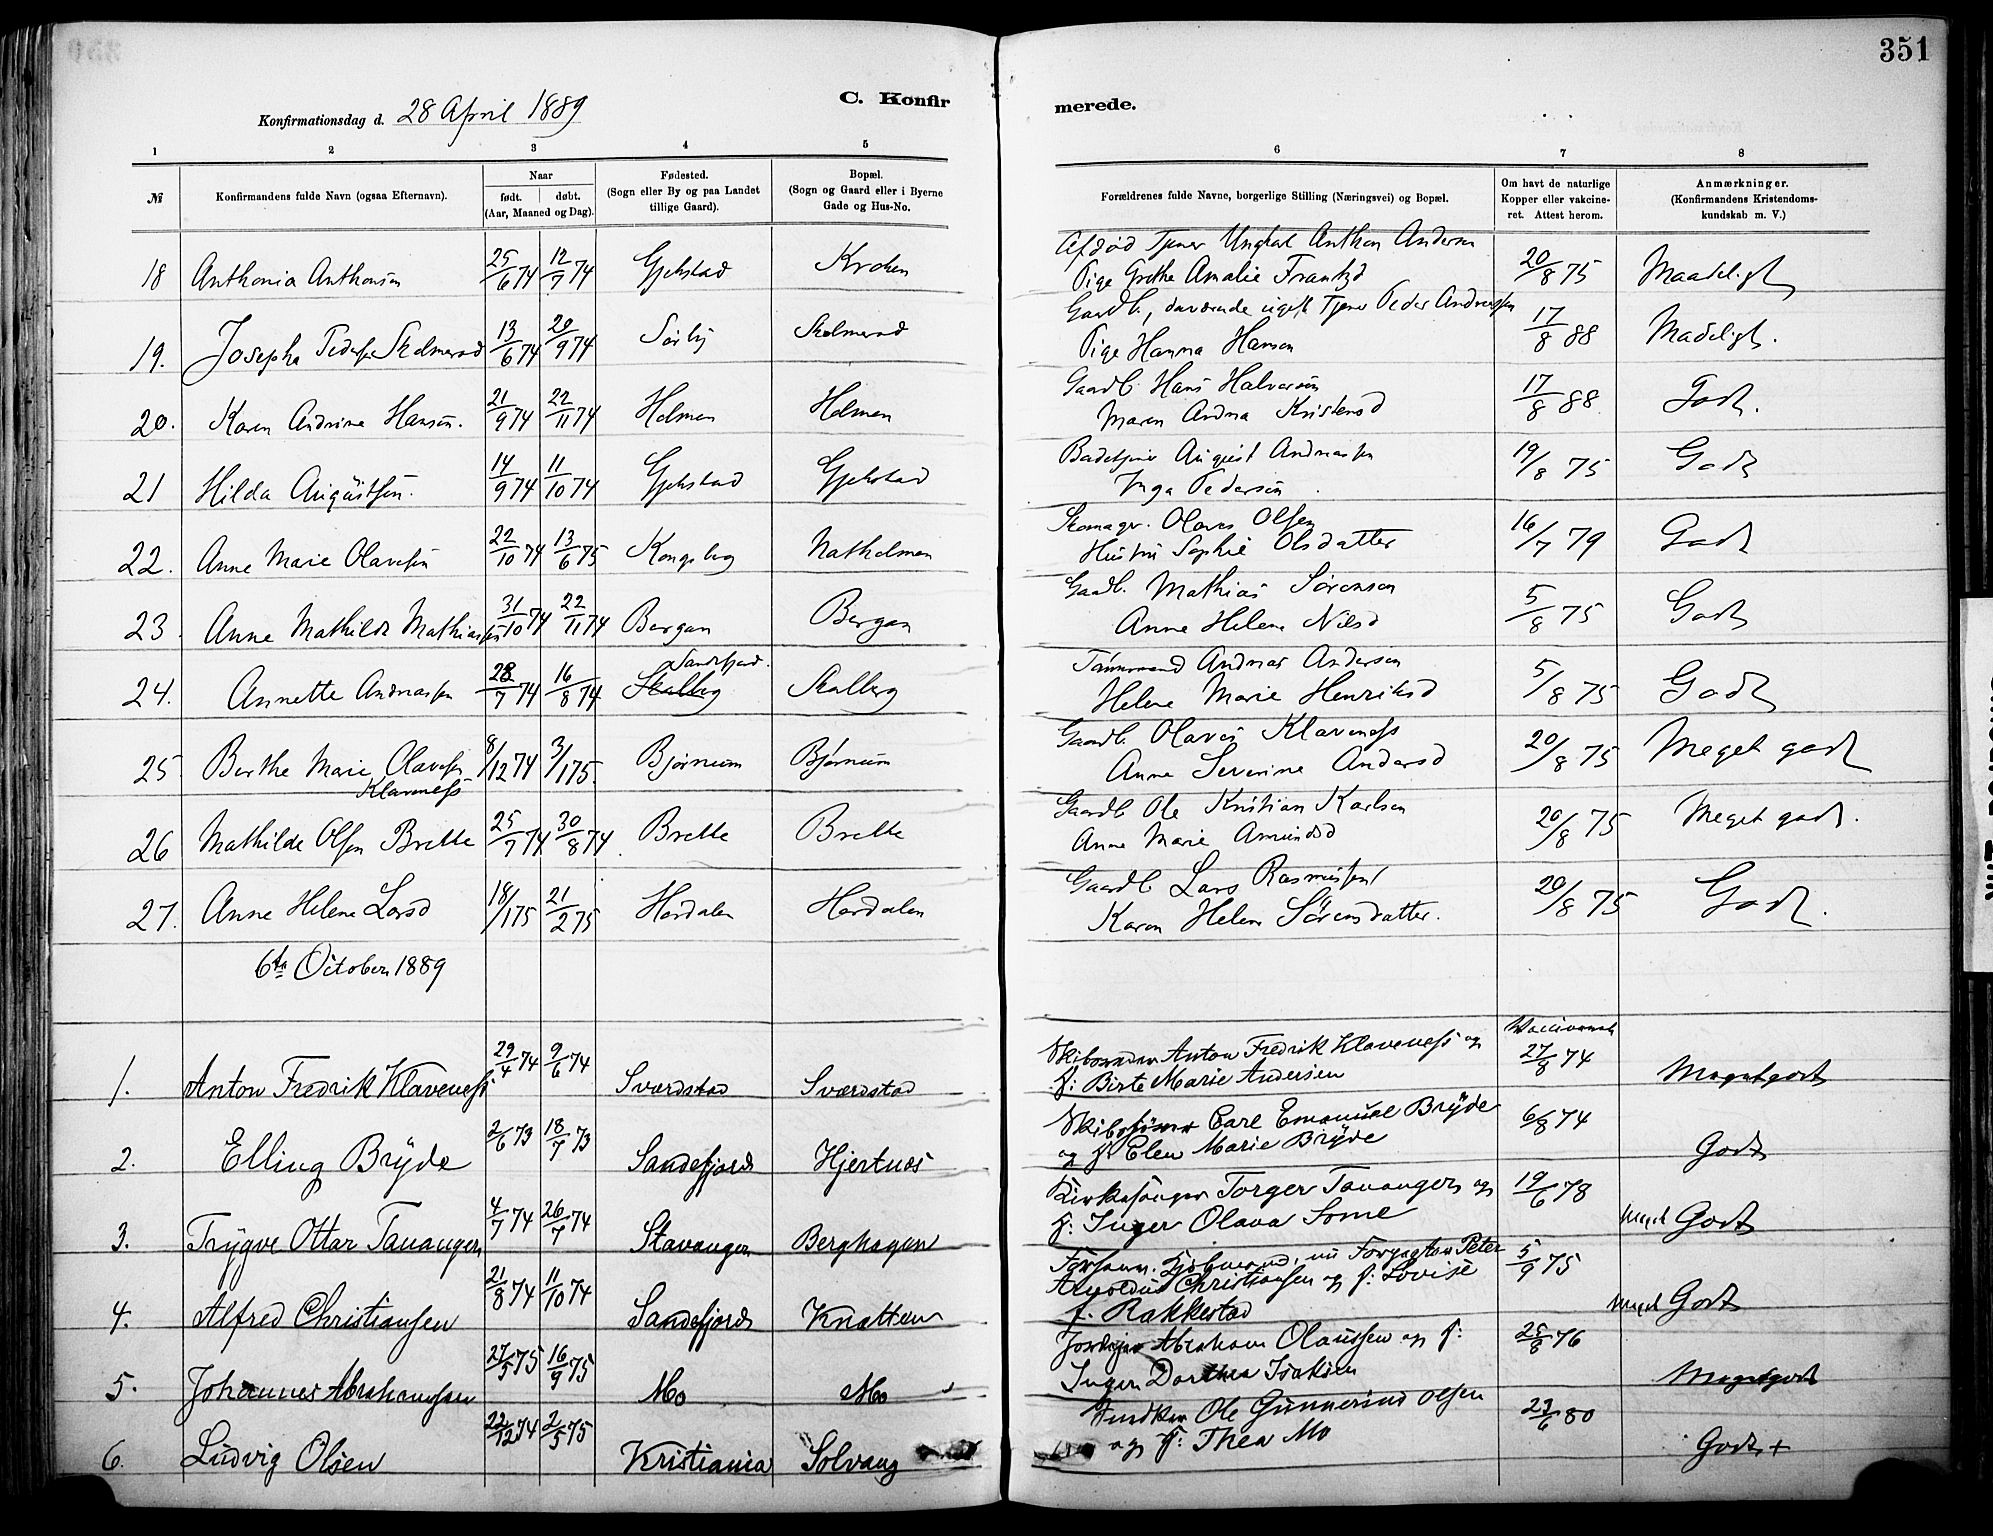 351
C. Konfir merede.
Konfirmationsdag d. 28 April 1889
1 2 3 4 5 6 7 8
№ Konfirmandens fulde Navn (ogsaa Efternavn).
Naar
født. døbt.
(Aar, Maaned og Dag).
Fødested.
(Sogn eller By og paa Landet
tillige Gaard).
Bopæl.
(Sogn og Gaard eller i Byerne
Gade og Hus-No.
Forældrenes fulde Navne, borgerlige Stilling (Næringsvei) og Bopæl.
Om havt de naturlige
Kopper eller vakcine-
ret. Attest herom.
Anmærkninger.
(Konfirmandens Kristendoms-
kundskab m. V.)
Afdød Tjener Ungkarl Anthon Andersen
18 Anthonia Anthonsen 25/6 74 12/7 74 Gjekstad Kroken Pige Grethe Amalie Frantzd 20/8 75 Maadeligt
Gaardb., daværende ugift Tjener Peder Andreassen
19. Josepha Peders Skolmerød 13/6 74 20/9 74 Sørby Skolmerød Pige Hanna Hansen 17/8 88 Madeligt.
Gaardb. Hans Halvorsen
20. Karen Andrine Hansen. 21/9 74 22/11 74 Holmen Holmen Maren Andrea Kristensd 17/8 88 Godt.
Badetjener August Andreassen
21 Hilda Augustsen. 14/9 74 11/10 74 Gjekstad Gjekstad Inga Pedersen 19/8 75 Godt
Skomager. Olaves Olsen
22. Anne Marie Olavesen 22/10 74 13/6 75 Kongsberg Natholmen Hustru Sophie Olsdatter 16/7 79 Godt
Gaardb. Mathias Sørensen
23. Anne Mathilde Mathiassen 31/10 74 22/11 74 Bergan Bergan Anne Helene Nilsd 5/8 75 Godt
Sandefjord.
Tømmermand Andreas Andersen
24. Annette Andreassen 28/7 74 16/8 74 Skalberg Skalberg Helene Marie Henriksd 5/8 75 Godt
Gaardb. Olaves Klaveness
25 Berthe Marie Olavesen 8/12 74 3/1 75. Bjørnum Bjørnum Anne Severine Andersd 20/8 75 Meget godt
Klaveness
Gaardb. Ole Kristian Karlsen
26 Mathilde Olsen Brekke 25/7 74 30/8 74 Brekke Brekke Anne Marie Amundsd 20/8 75 Meget godt.
Gaardb. Lars Rasmussen
27. Anne Helene Larsd 18/1 75 21/2 75 Hordalen Hordalen Karen Helene Sørensdatter. 20/8 75 Godt.
6te October 1889
Skibsreder Anton Fredrik Klaveness og
1. Anton Fredrik Klaveness 29/4 74 9/6 74 Sværdstad Sværdstad f: Birte Marie Andersen 27/8 74 Megetgodt
Carl Emanuel Bryde
2. Elling Bryde 2/6 73 18/7 73 Sandefjord Hjertnæs og f: Elen Marie Bryde 6/8 74 Godt
Kirkesanger Torger Tananger og
3. Trygve Ottar Tananger 4/7 74 26/7 74 Stavanger Berghagen f: Inger Olava Some 19/6 78 Meget Godt
nu Forgagtar Peter
Arnoldus Christiansen og f: Lovise
4. Alfred Christiansen 21/8 74 11/10 74 Sandefjord Knatten f. Rakkestad 5/9 75 Meget Godt
Abraham Olaussen og f:
5. Johannes Abrahamsen 27/5 75 16/9 75 Mo Mo Inger Dorthea Isaksen 25/8 76 Megetgodt
Snedker Ole Gunnerius Olsen
6. Ludvig Olsen 22/12 74 2/5 75 Kristiania Solvang og f: Thea Mo 23/6 80 Godt +